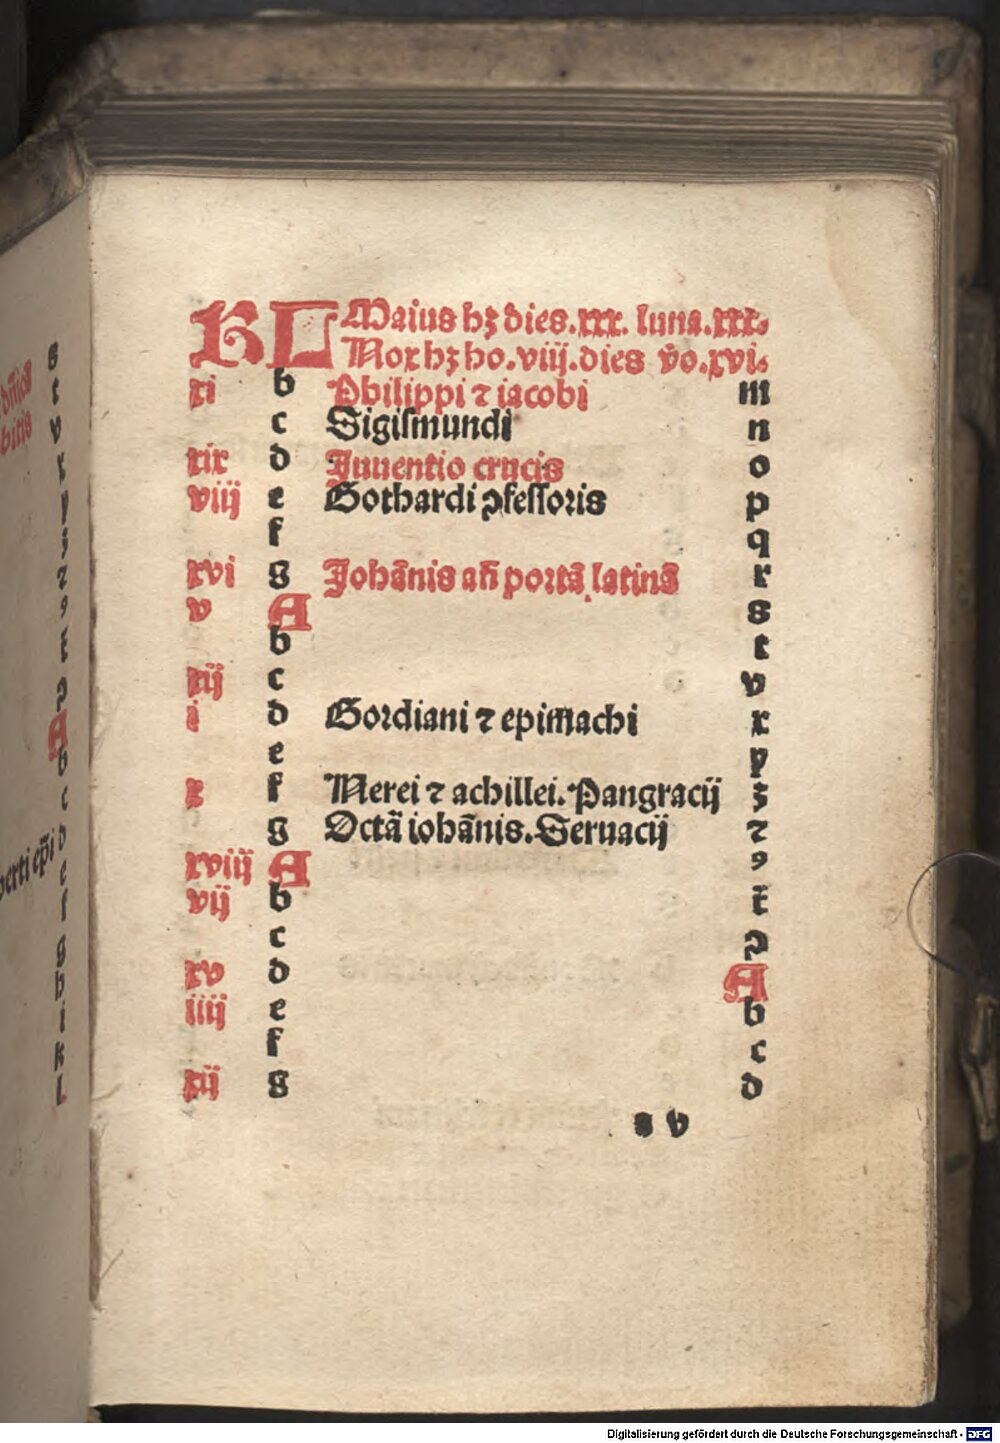 KL Maius hꝫ dies.xxx. luna.xxx.
Nox hꝫ ho.viij.dies v̄o.xvi.
xi b Philippi ⁊ iacobi m
c Sigiſmundi n
xix d Inuentio crucis o
viij e Gothardi ꝯfeſſoris p
f q
xvi g Johānis añ portā latinā r
v A s
b t
xij c v
i d Gordiani ⁊ epimachi x
e y
x f Nerei ⁊ achillei. Pangracij z
g Octā iohānis. Seruacij ⁊
xviij A 9
vij b
c
xv d A
iiij e b
f c
xij g d
s
t
v
x
y
z
⁊
9
A
b
c
perti ep̄i d
e
f
g
h
i
k
l
Digitalisierung gefördert durch die Deutsche Forschungsgemeinschaft - DFG